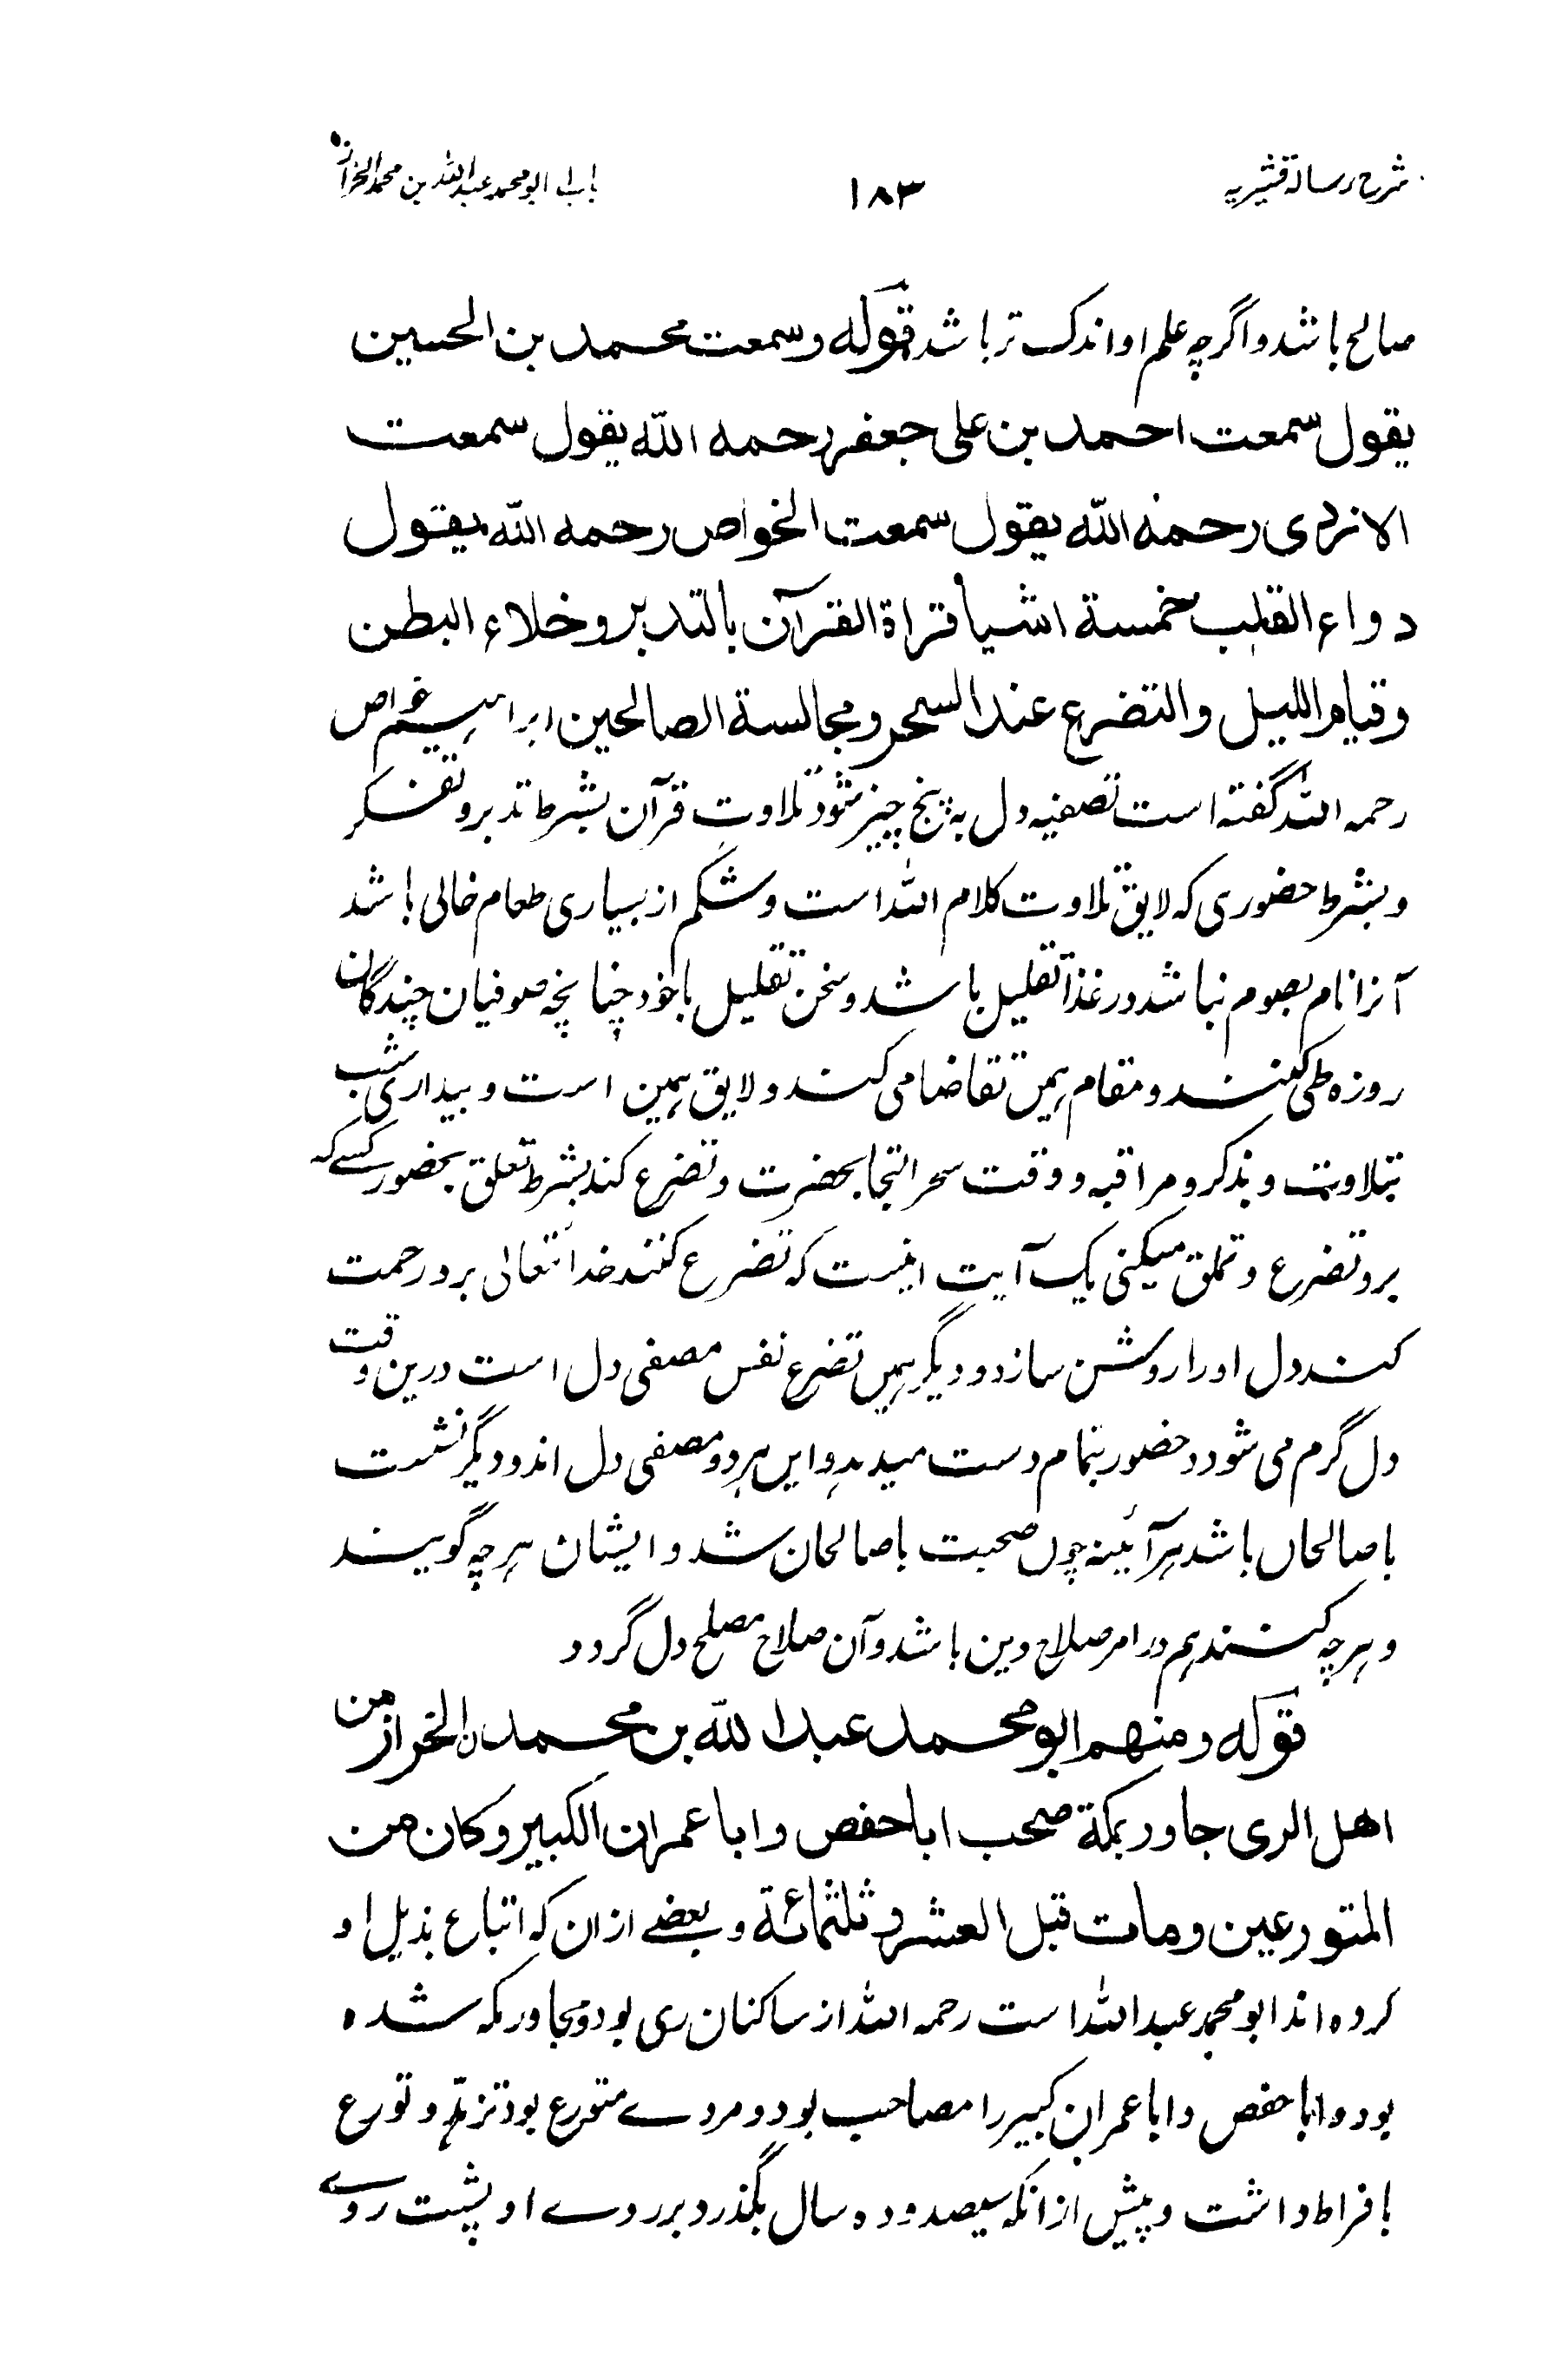 شرح رسالۀ قشیریہ
۱۸۳
باب ابومحمد عبداللہ بن محمد الخراز
صالح باشد واگرچہ علم او اندک تر باشد قولہ وسمعت محمد بن الحسین
یقول سمعت احمد بن علی جعفر رحمہ اللہ یقول سمعت
الازدی رحمہ اللہ یقول سمعت الخواص رحمہ اللہ یقول
دواء القلب خمسة اشیأ قراة القرآن بالتدبر وخلاء البطن
وقیام اللیل والتضرع عند السحر ومجالسة الصالحین ابراہیم خواص
رحمہ اللہ گفتہ است تصفیہ دل بہ پنج چیز شود تلاوتِ قرآن بشرط تدبر وتفکر
وبشرط حضوری کہ لایق تلاوت کلام اللہ است وشکم از بسیاری طعام خالی باشد
آنرا نام بصوم نباشد در غذا تقلیل باشد وسخن تقلیل باخود چنانچہ صوفیان چندگان
روزہ طی کنند ومقام ہمین تقاضا می کند ولایق ہمین است وبیداری شب
بتلاوت وبذکر ومراقبہ ووقت سحر التجا بحضرت وتضرع کند بشرط تعلق بحضور کسے کہ
برو تضرع وتملق میکنی یک آیت اینست کہ تضرع کنند خدا تعالی برو رحمت
کند دل اورا روشن سازد ودیگر ہمیں تضرع نفس مصفی دل است درین وقت
دل گرم می شود وحضور بتمام دست میدہد وایں ہردو مصفی دل اند ودیگر نشست
با صالحاں باشد ہرآئینہ چوں صحبت با صالحان شد وایشان ہرچہ گویند
وہرچہ کنند ہم در امر صلاح دین باشد وآن صلاح مصلح دل گردد
قولہ ومنہم ابومحمد عبد اللہ بن محمدن الخراز من
اهل الری جاور بمکة صحب اباحفص وابا عمران الکبیر وکان من
المتورعین ومات قبل العشر وثلثمائة وبعضے ازان کہ اتباع بذیل او
کردہ اند ابومحمد عبداللہ است رحمہ اللہ از ساکنان ری بود ومجاور مکہ شدہ
بود واباحفص واباعمران کبیر را مصاحب بود ومردے متورع بود تزہد وتورع
بافراط داشت وپیش از انکہ سیصد ودہ سال بگذرد بر روے او پشت روے